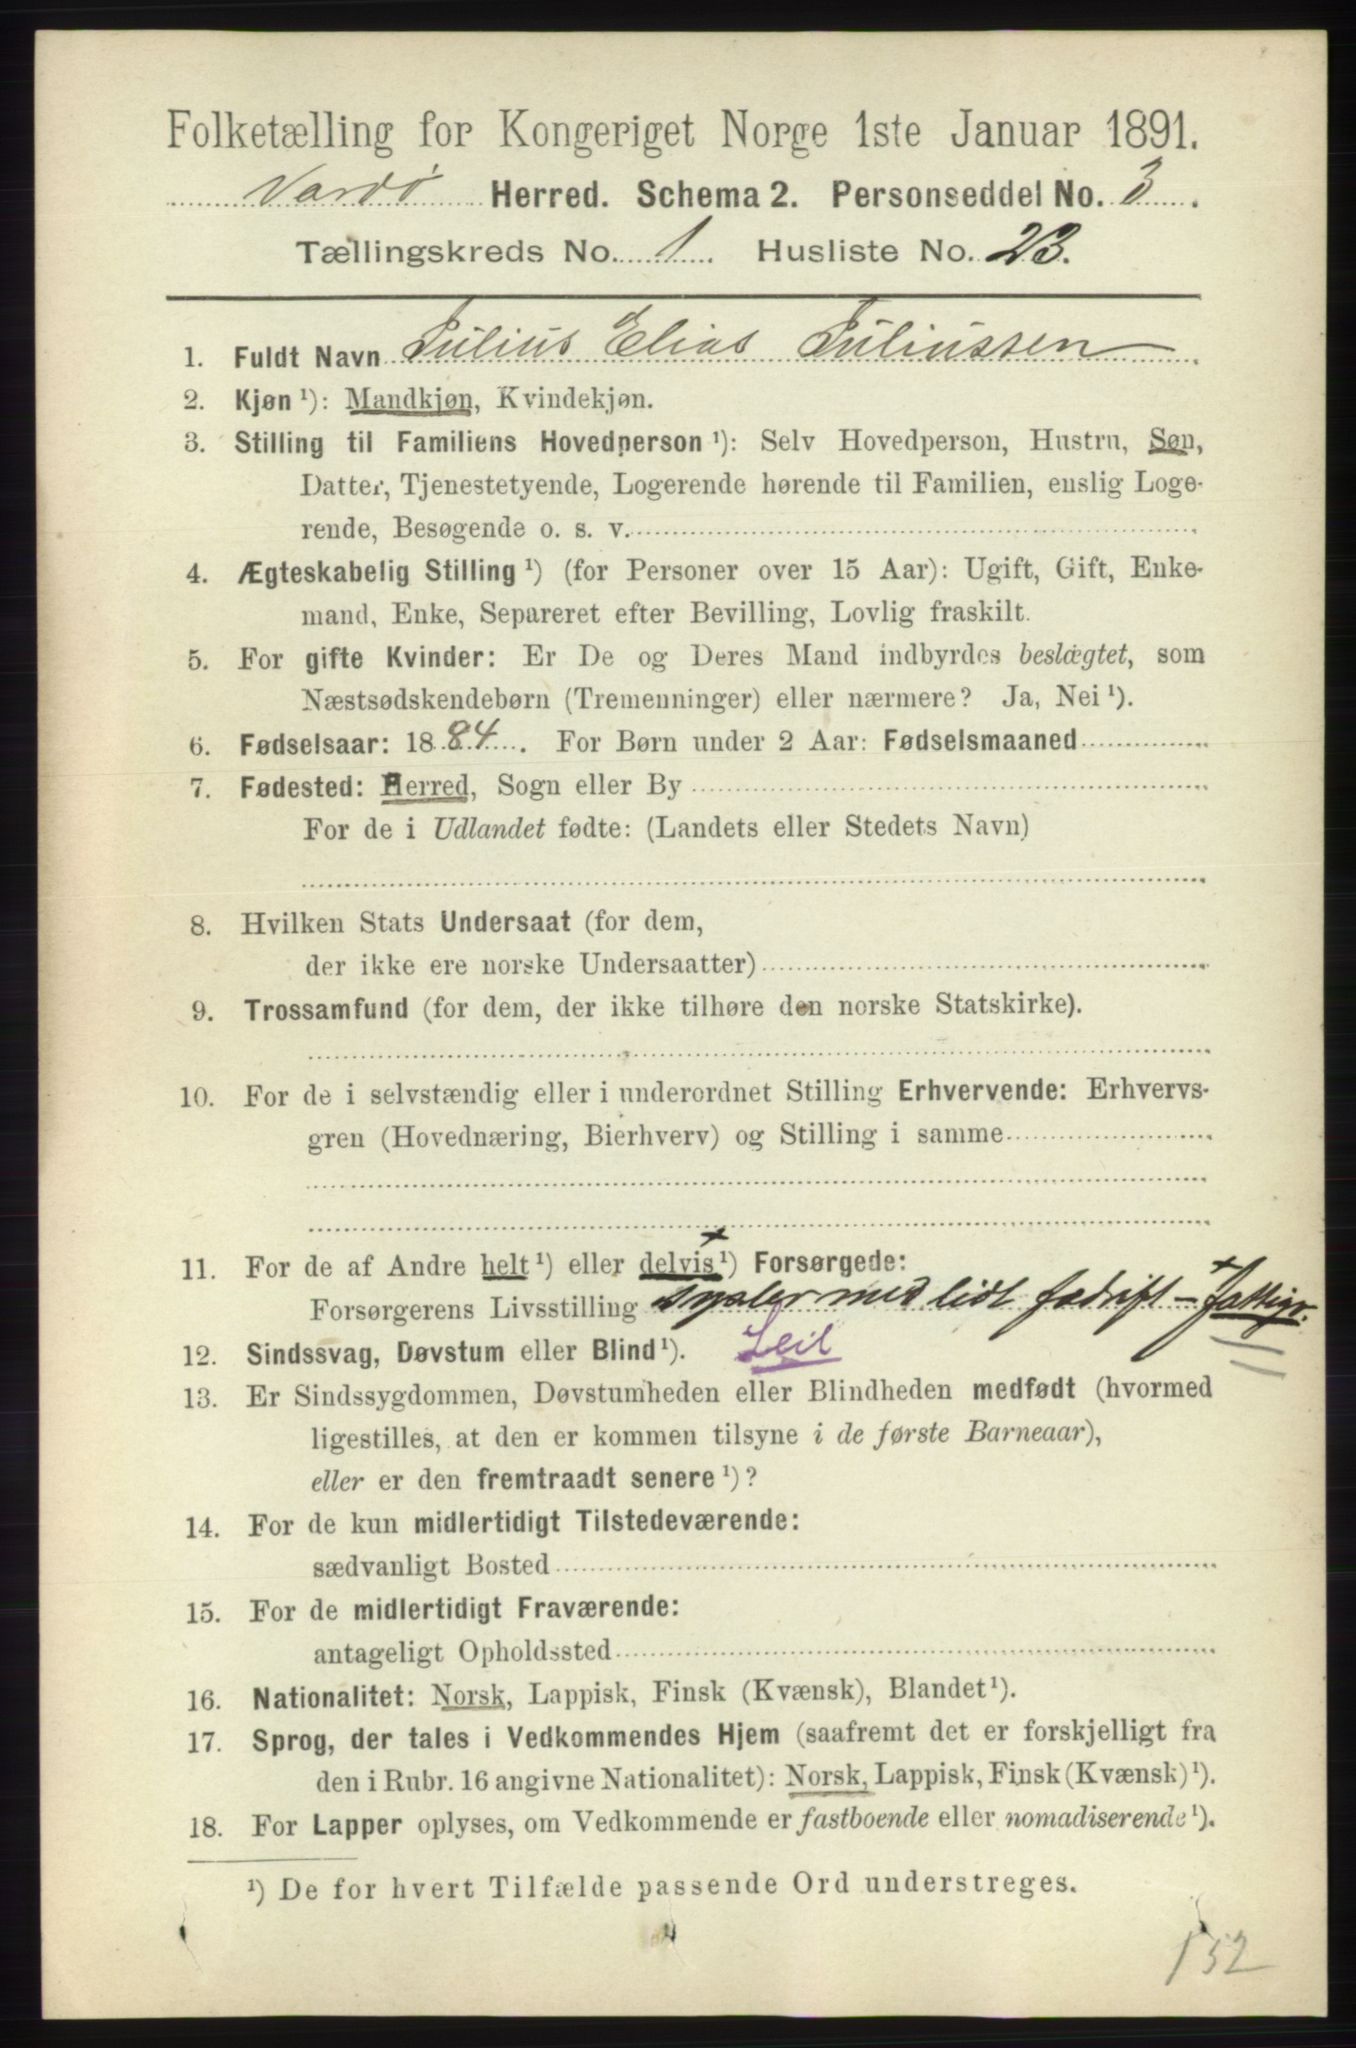 Folketælling for Kongeriget Norge 1ste Januar 1891.
Vardø Herred. Schema 2. Personseddel No. 3.
Tællingskreds No. 1. Husliste No. 23.
1. Fuldt Navn Julius Elias Juliussen
2. Kjøn ¹): Mandkjøn, Kvindekjøn.
3. Stilling til Familiens Hovedperson ¹): Selv Hovedperson, Hustru, Søn,
Datter, Tjenestetyende, Logerende hørende til Familien, enslig Loge-
rende, Besøgende o. s. v.
4. Ægteskabelig Stilling ¹) (for Personer over 15 Aar): Ugift, Gift, Enke-
mand, Enke, Separeret efter Bevilling, Lovlig fraskilt.
5. For gifte Kvinder: Er De og Deres Mand indbyrdes beslægtet, som
Næstsødskendebørn (Tremenninger) eller nærmere? Ja, Nei ¹).
6. Fødselsaar: 1884. For Børn under 2 Aar: Fødselsmaaned
7. Fødested: Herred, Sogn eller By
For de i Udlandet fødte: (Landets eller Stedets Navn)
8. Hvilken Stats Undersaat (for dem,
der ikke ere norske Undersaatter)
9. Trossamfund (for dem, der ikke tilhøre den norske Statskirke).
10. For de i selvstændig eller i underordnet Stilling Erhvervende: Erhvervs-
gren (Hovednæring, Bierhverv) og Stilling i samme
11. For de af Andre helt ¹) eller delvis ¹) Forsørgede:
Forsørgerens Livsstilling med lidt fædrift - + Fattigv.
12. Sindssvag, Døvstum eller Blind ¹).
13. Er Sindssygdommen, Døvstumheden eller Blindheden medfødt (hvormed
ligestilles, at den er kommen tilsyne i de første Barneaar),
eller er den fremtraadt senere ¹)?
14. For de kun midlertidigt Tilstedeværende:
sædvanligt Bosted
15. For de midlertidigt Fraværende:
antageligt Opholdssted
16. Nationalitet: Norsk, Lappisk, Finsk (Kvænsk), Blandet ¹).
17. Sprog, der tales i Vedkommendes Hjem (saafremt det er forskjelligt fra
den i Rubr. 16 angivne Nationalitet): Norsk, Lappisk, Finsk (Kvænsk) ¹).
18. For Lapper oplyses, om Vedkommende er fastboende eller nomadiserende ¹).
¹) De for hvert Tilfælde passende Ord understreges.
152